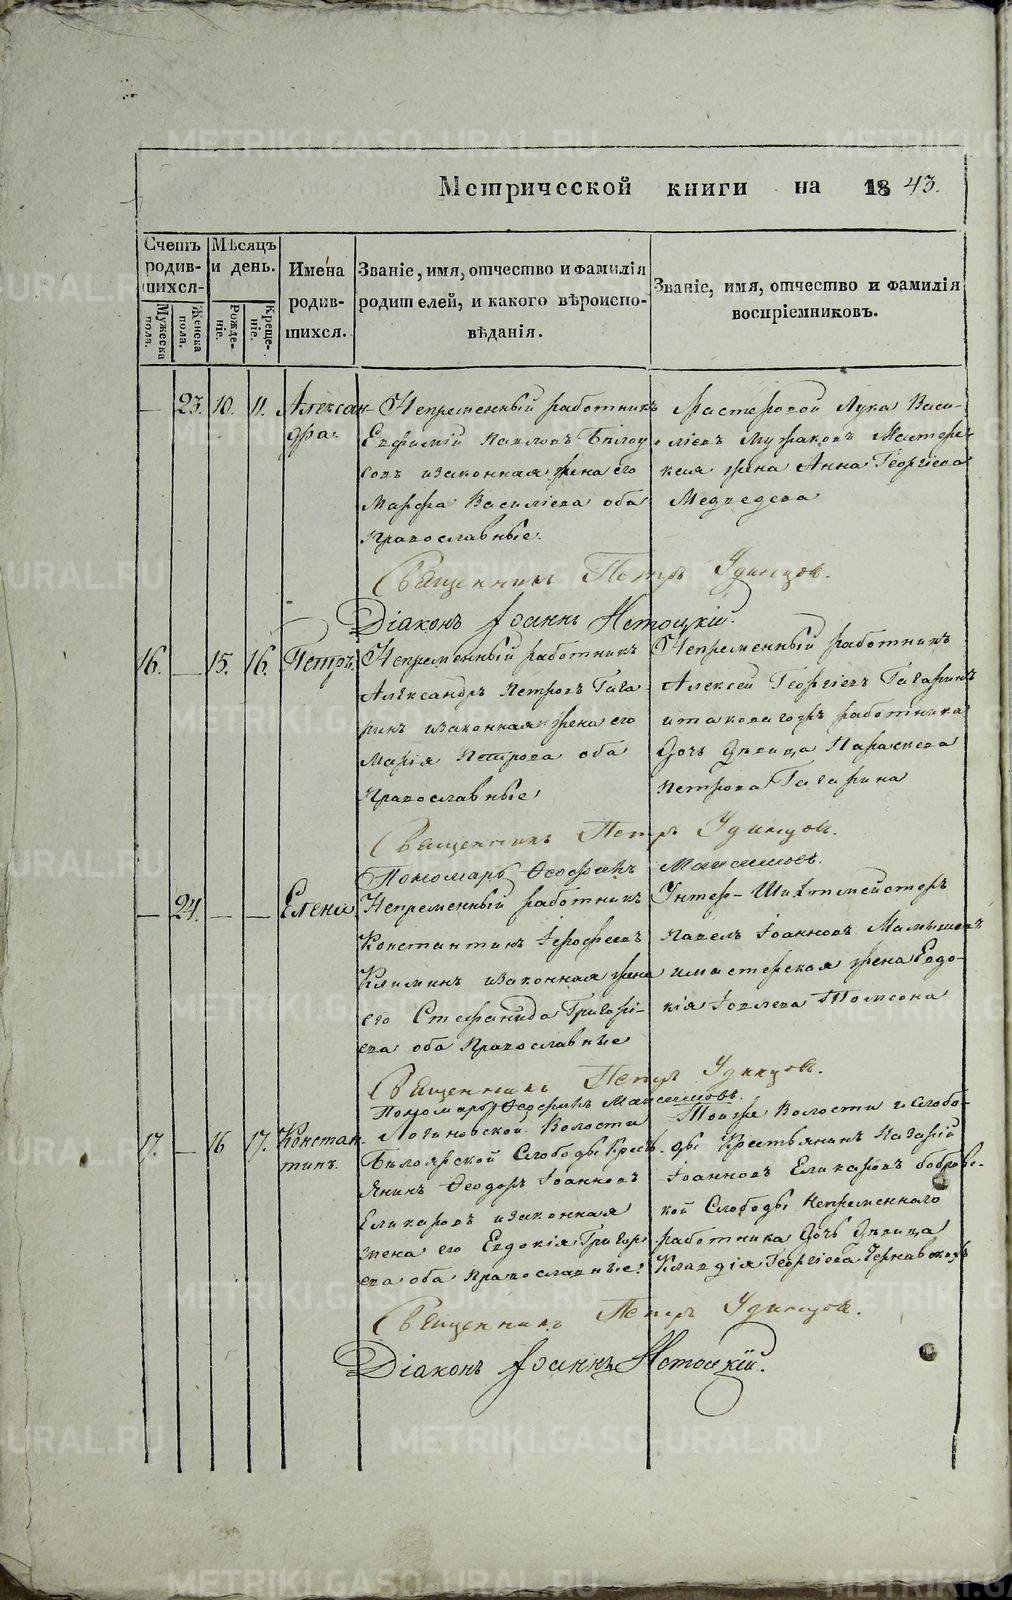 METRIKI.GASO-URAL.RU
Метрической книги на 1843.
Счетъ родившихся.
Мѣсяцъ и день.
Имена родившихся.
Званіе, имя, отчество и фамилія родителей, и какого вѣроисповѣданія.
Званіе, имя, отчество и фамилія воспріемниковъ.
Мужеска пола.
Женска пола.
Рожденіе.
Крещеніе.
— 23. 10. 11. Алексан-
дра.
Непременный работникъ
Евфимій Павловъ Бѣлоу
совъ и законная жена его
Марфа Василіева оба
Православные.
Мастеровой Лука Васи-
ліевъ Мужаковъ Мастерс-
кая жена Анна Георгіева
Медведева
Священникъ Петръ Удинцов.
Діаконъ Іоаннъ Нетоцкій.
16. — 15. 16. Петръ.
Непременный работникъ
Александръ Петровъ Гага-
ринъ и законная жена его
Марія Петрова оба
Православные
Непременный работникъ
Алексей Георгіевъ Гагаринъ
и таковагожъ работника
Дочь девица Параскева
Петрова Гагарина
Священникъ Петръ Удинцов.
Пономарь Ѳеофилъ Максимовъ.
— 24. — — Елена
Непременный работникъ
Константинъ Іерофеевъ
Климинъ и законная жена
его Стефанида Григорі-
ева оба Православные
Унтер-Шихтмейстеръ
Павелъ Іоанновъ Мамышевъ
и мастерская жена Евдо-
кія Іовлева
Священникъ Петръ Удинцов.
Пономарь Ѳеофилъ Максимовъ.
17. — 16 17. Констан-
тинъ.
Логиновской Волости
Бѣлоярской Слободы Кресть-
янинъ Ѳеодоръ Іоанновъ
Еликаровъ и законная
жена его Евдокія Григор
ева оба Православные.
Тойже Волости и Слобо-
ды Крестьянинъ Назарій
Іоанновъ Еликаровъ бобровс-
кой Слободы Непременнаго
работника Дочь Девица
Клавдія Георгіева
Священникъ Петръ Удинцов.
Діаконъ Іоаннъ Нетоцкій.